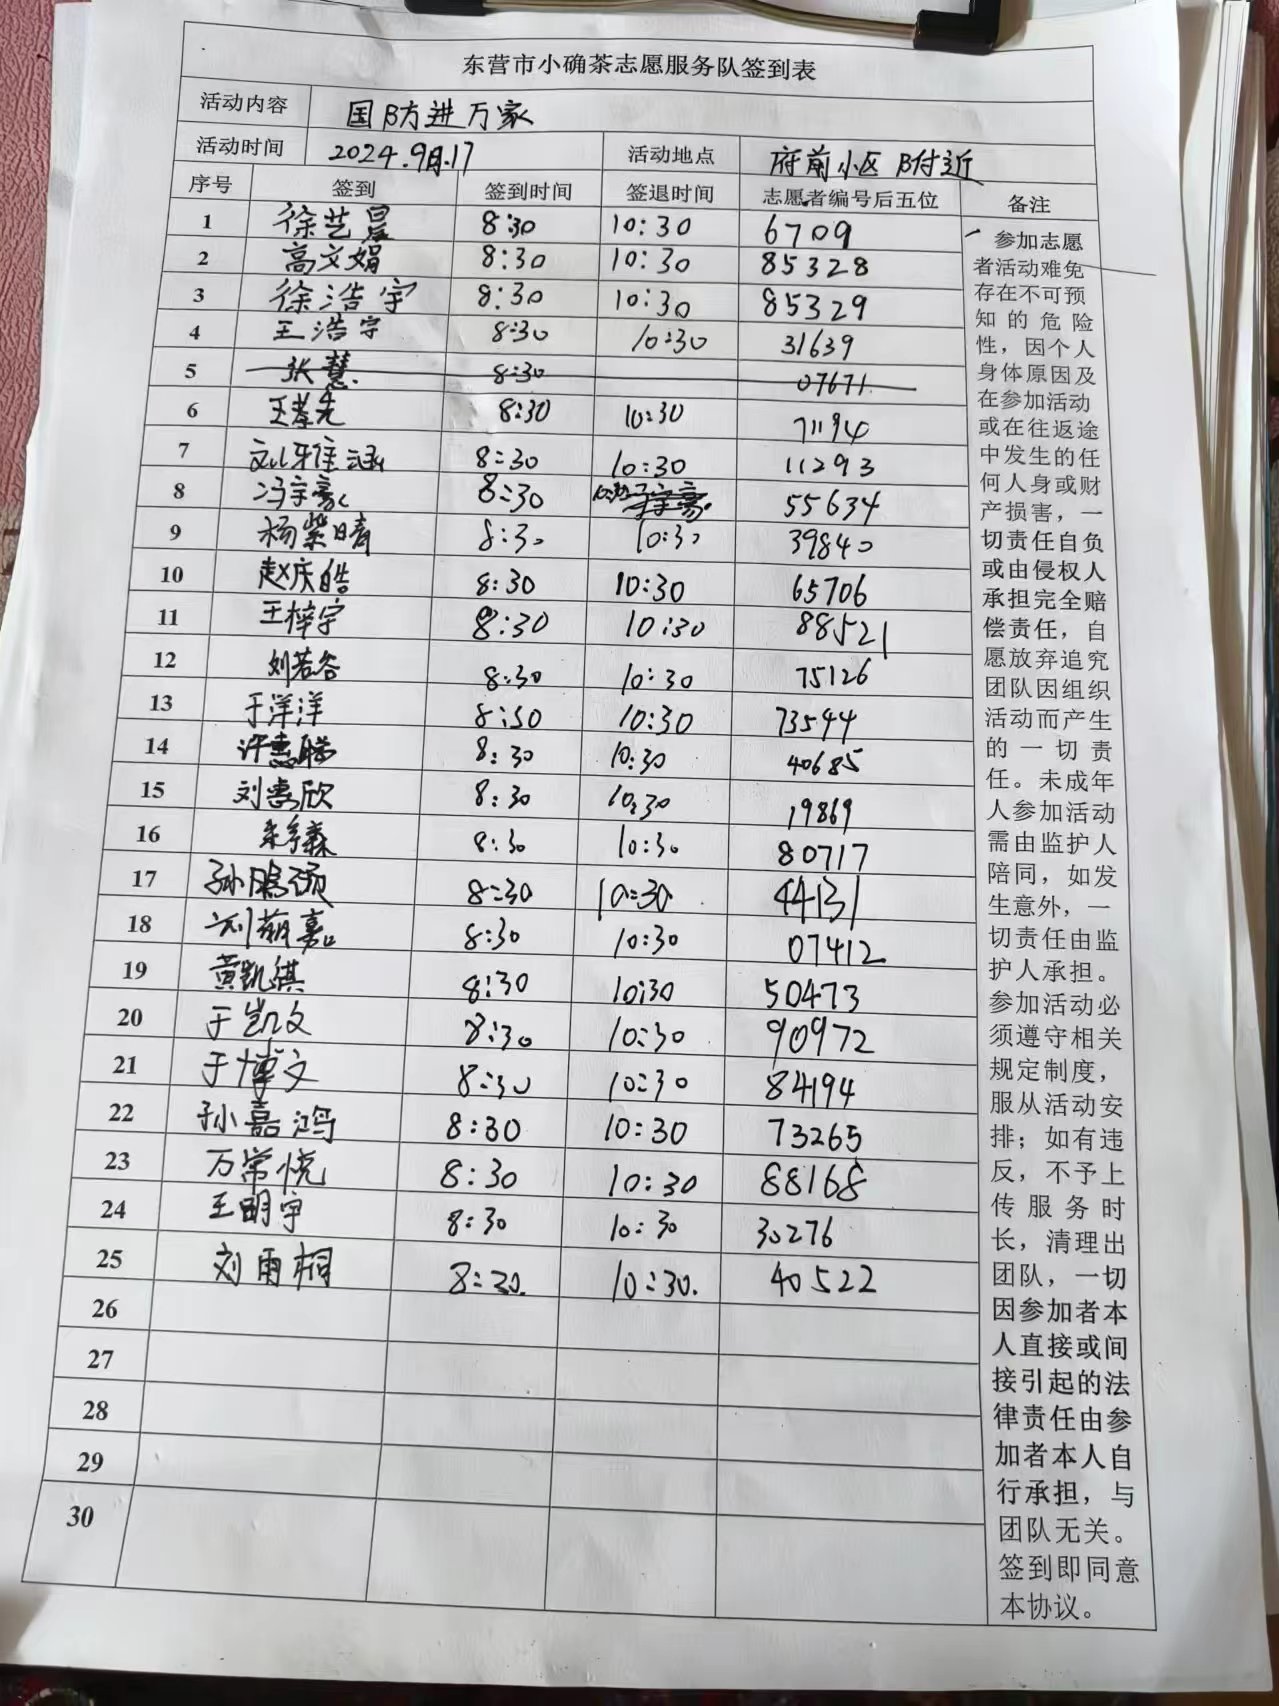 东营市小确茶志愿服务队签到表
活动内容 国防进万家
活动时间 2024.9月.17 活动地点 府前小区附近
序号 签到 签到时间 签退时间 志愿者编号后五位 备注
1 徐艺晨 8:30 10:30 6709
2 高文娟 8:30 10:30 85328
3 徐浩宇 8:30 10:30 85329
4 王浩宇 8:30 10:30 31639
5 张慧 8:30 07671
6 王孝先 8:30 10:30 71194
7 8:30 10:30 11293
8 冯宇豪 8:30 55634
9 杨紫晴 8:30 10:30 39840
10 赵庆皓 8:30 10:30 65706
11 王梓宇 8:30 10:30 88521
12 刘若谷 8:30 10:30 75126
13 于洋洋 8:30 10:30 73544
14 8:30 10:30 40685
15 刘惠欣 8:30 10:30 19869
16 8:30 10:30 80717
17 8:30 10:30 44131
18 8:30 10:30 07412
19 黄凯淇 8:30 10:30 50473
20 于凯文 8:30 10:30 90972
21 于博文 8:30 10:30 84194
22 孙嘉鸿 8:30 10:30 73265
23 万常悦 8:30 10:30 88168
24 王明宇 8:30 10:30 30276
25 刘雨桐 8:30. 10:30. 40522
26
27
28
29
30
参加志愿
者活动难免
存在不可预
知的危险
性，因个人
身体原因及
在参加活动
或在往返途
中发生的任
何人身或财
产损害，一
切责任自负
或由侵权人
承担完全赔
偿责任，自
愿放弃追究
团队因组织
活动而产生
的一切责
任。未成年
人参加活动
需由监护人
陪同，如发
生意外，一
切责任由监
护人承担。
参加活动必
须遵守相关
规定制度，
服从活动安
排；如有违
反，不予上
传服务时
长，清理出
团队，一切
因参加者本
人直接或间
接引起的法
律责任由参
加者本人自
行承担，与
团队无关。
签到即同意
本协议。